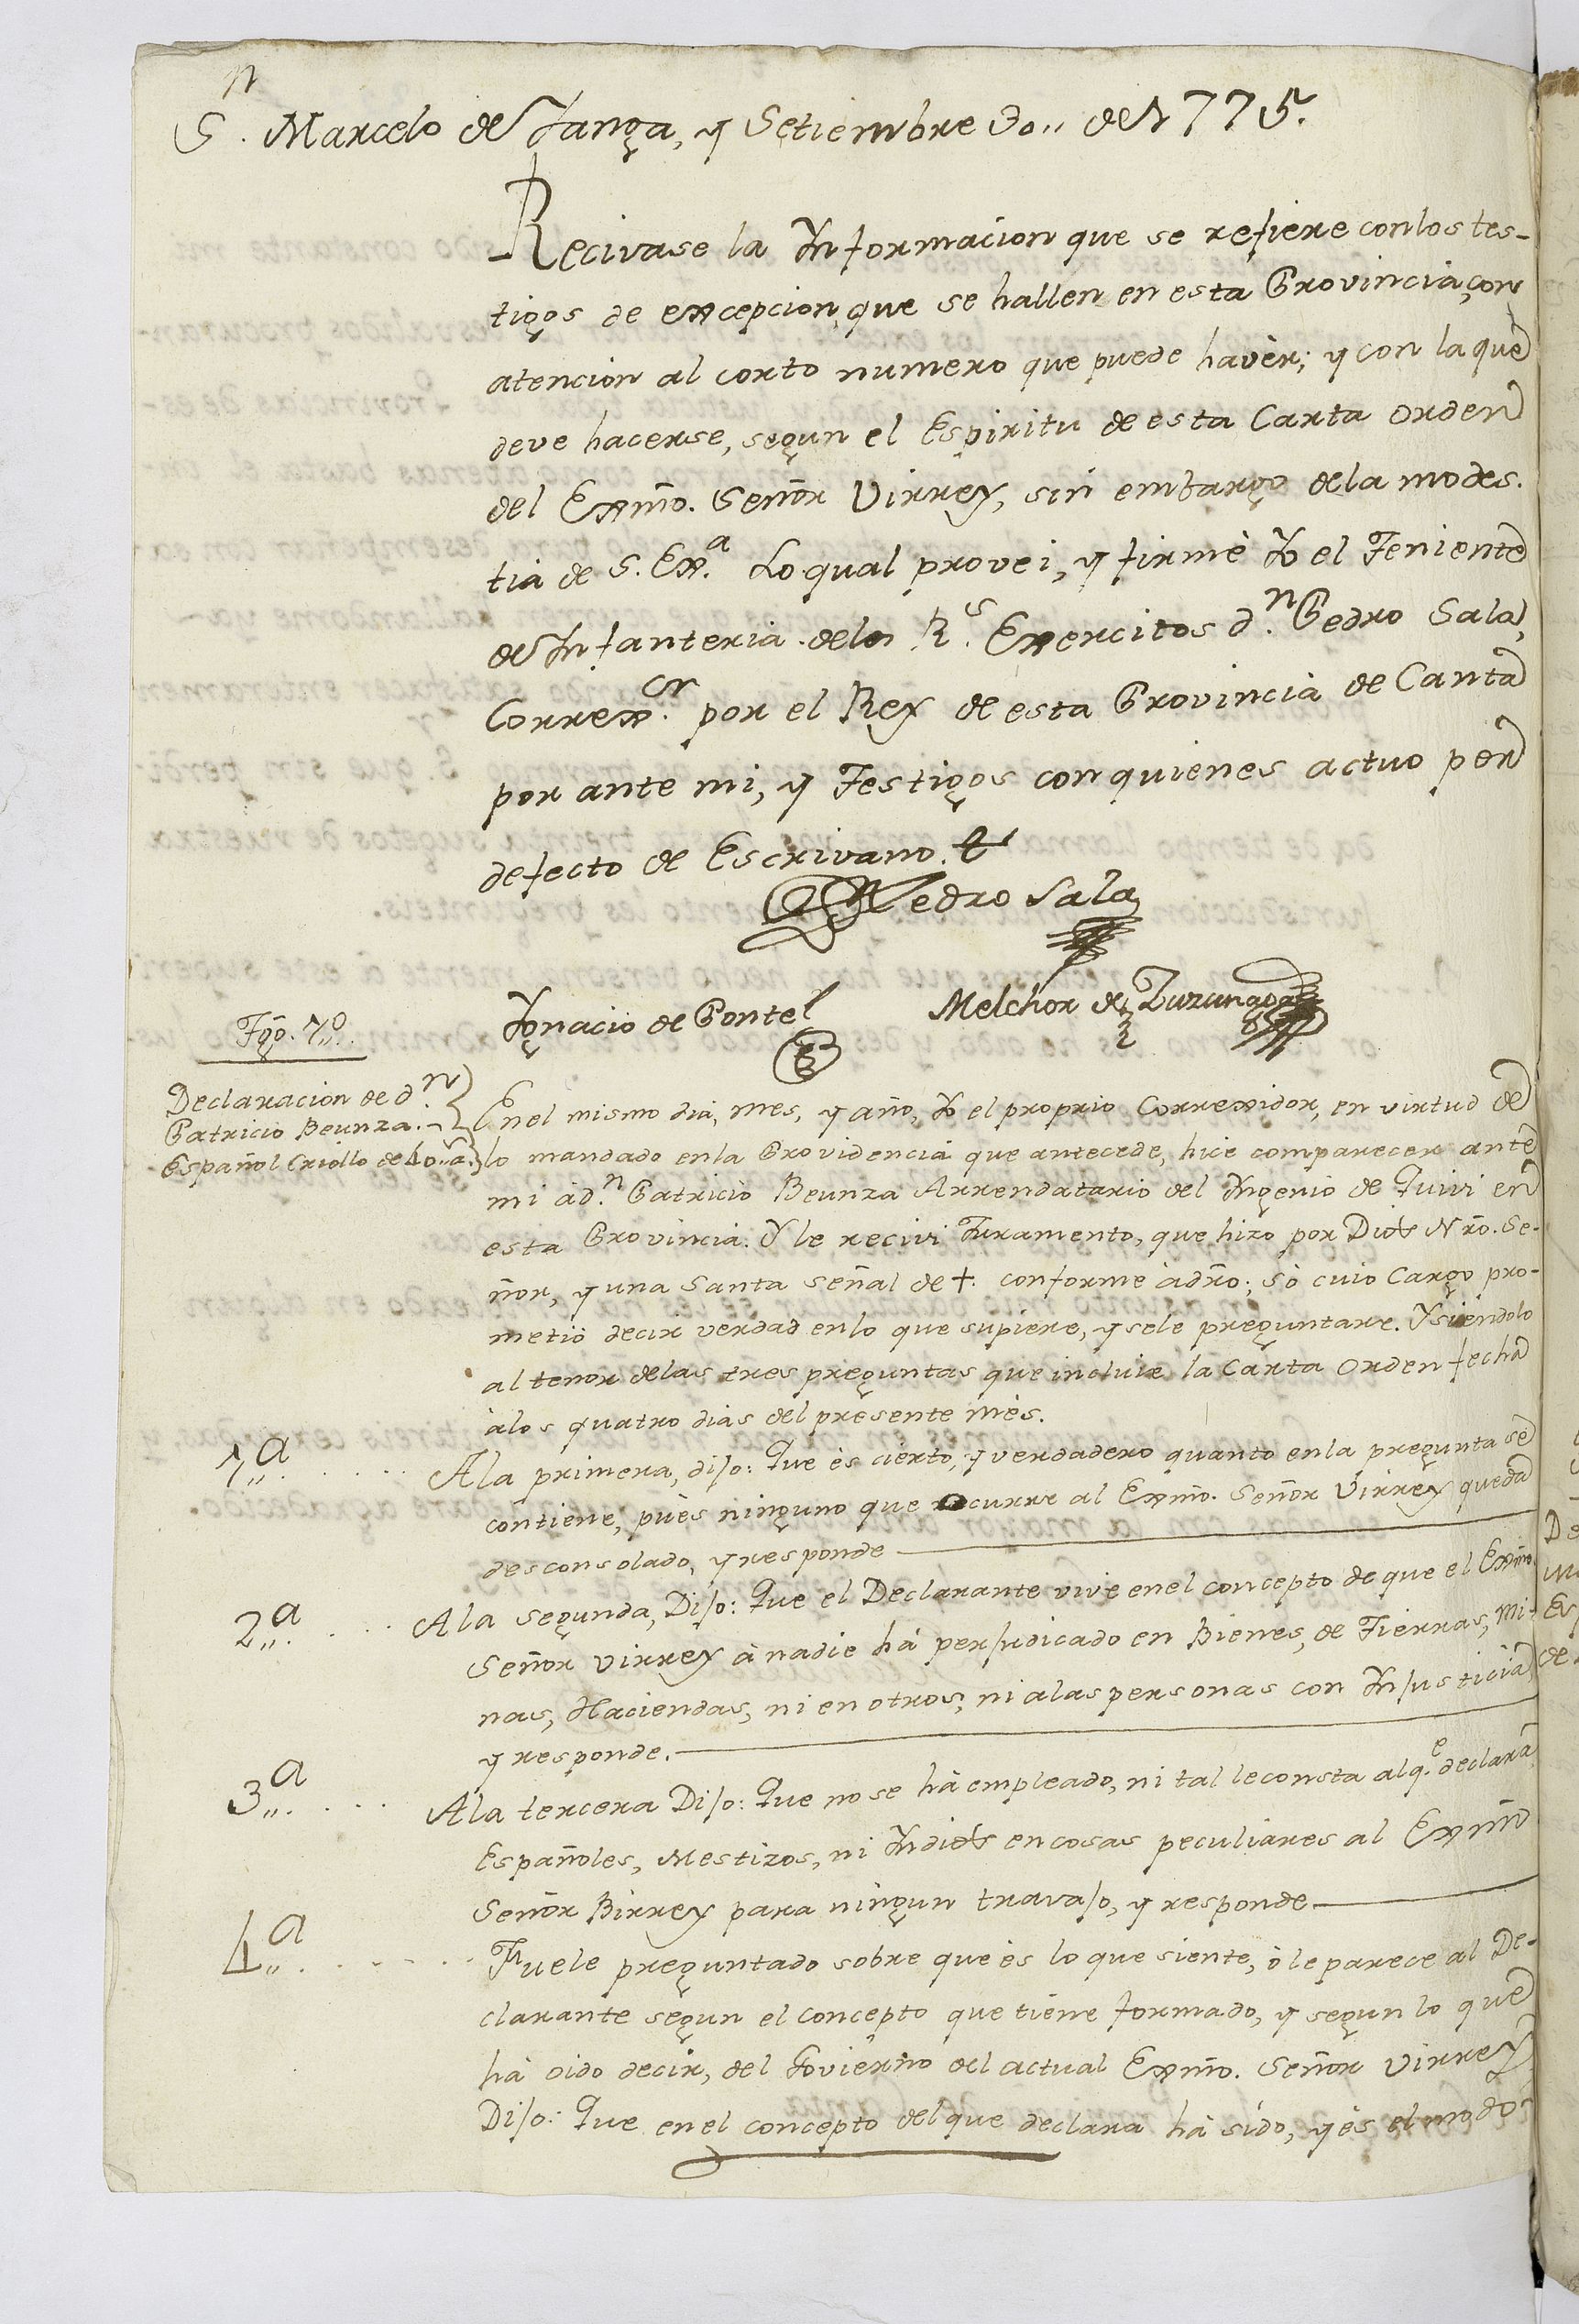 S.n Marcelo de Yanga, y Setiembre 30,, de 1775.
Recivase la Informacion que se refiere con los tes-
tigos de excepcion, que se hallen en esta Provincia, con
atencion al corto numero que puede havèr; y con la que
deve hacerse, segun el Espiritu de esta Carta orden
del Exmõ. Señor Virrey, sin embargo de la modes.
tia de S. Ex.a Lo qual provei, y firmè Yo el Teniente
de Infanteria de los R.s Exercitos d.n Pedro Sala,
Correx.or por el Rey de esta Provincia de Canta
por ante mi, y Testigos con quienes actuo por
defecto de Escrivano.
Pedro Sala
Ygnacio de Pontel
Melchor de
Tgõ. 1,,o
Declaracion de d.n
Patricio Beunza.
Español Criollo de 40,, a.s
En el mismo dia, mes, y año, Yo el proprio Correxidor, en virtud de
lo mandado en la Providencia que antecede, hice comparecer ante
mi à d.n Patricio Beunza Arrendatario del Ingenio de Quivi en
esta Provincia. Y le recivi Juramento, que hizo por Dios Nrõ. Se-
ñor, y una Santa señal de +. conforme à drõ; sò cuio Cargo pro-
metiò decir verdad en lo que supiere, y se le preguntare. Y siendolo
al tenor de las tres preguntas que incluie la Carta Orden fecha
à los quatro dias del presente mes.
1,,a. . . . . A la primera, dijo: Que ès cierto, y verdadero quanto en la pregunta se
contiene, pues ninguno que ocurre al Exmõ. Señor Virrey queda
desconsolado, y responde
2,,a. . . . A la segunda, Dijo: Que el Declarante vive en el concepto de que el Exmõ.
Señor Virrey à nadie hà perjudicado en Bienes, de Tierras, Mi-
nas, Haciendas, ni en otros, ni a las personas con Injusticia,
y responde.
3,,a. . . . A la tercera Dijo: Que no se hà empleado, ni tal le consta al q.e declara
Españoles, Mestizos, ni Indios en cosas peculiares al Exmõ
Señor Birrey para ningun travajo, y responde
4,,a. . . . . Fuele preguntado sobre que ès lo que siente, ò le parece al De-
clarante segun el concepto que tiene formado, y segun lo que
hà oido decir, del Govierno del actual Exmõ. Señor Virrey,
Dijo: Que en el concepto del que declara hà sido, y ès el modo